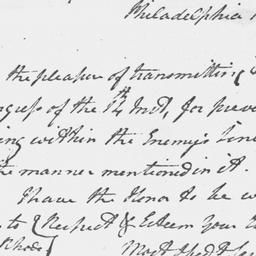 Philadelphia
the pleasure of transmitting
ngress of the 14th Inst, for preve
ing within the Enemy's Line
the manner mentioned in it.
I have the Honor to be w
to { Respect & Esteem your
Rhode }
Most Obedt Ser